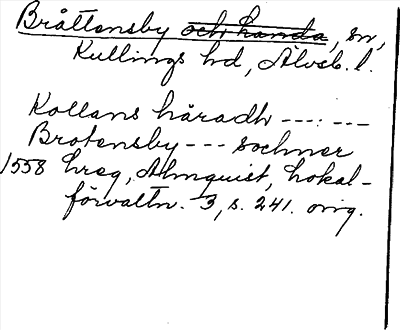 Bråttensby och Landa, sn,
Kullings hd, Älvsb. l.
Kollans häradh ---: ---
Brotensby --- sochner
1558 hreg, Almquist, Lokal-
förvaltn. 3, s. 241. orig.